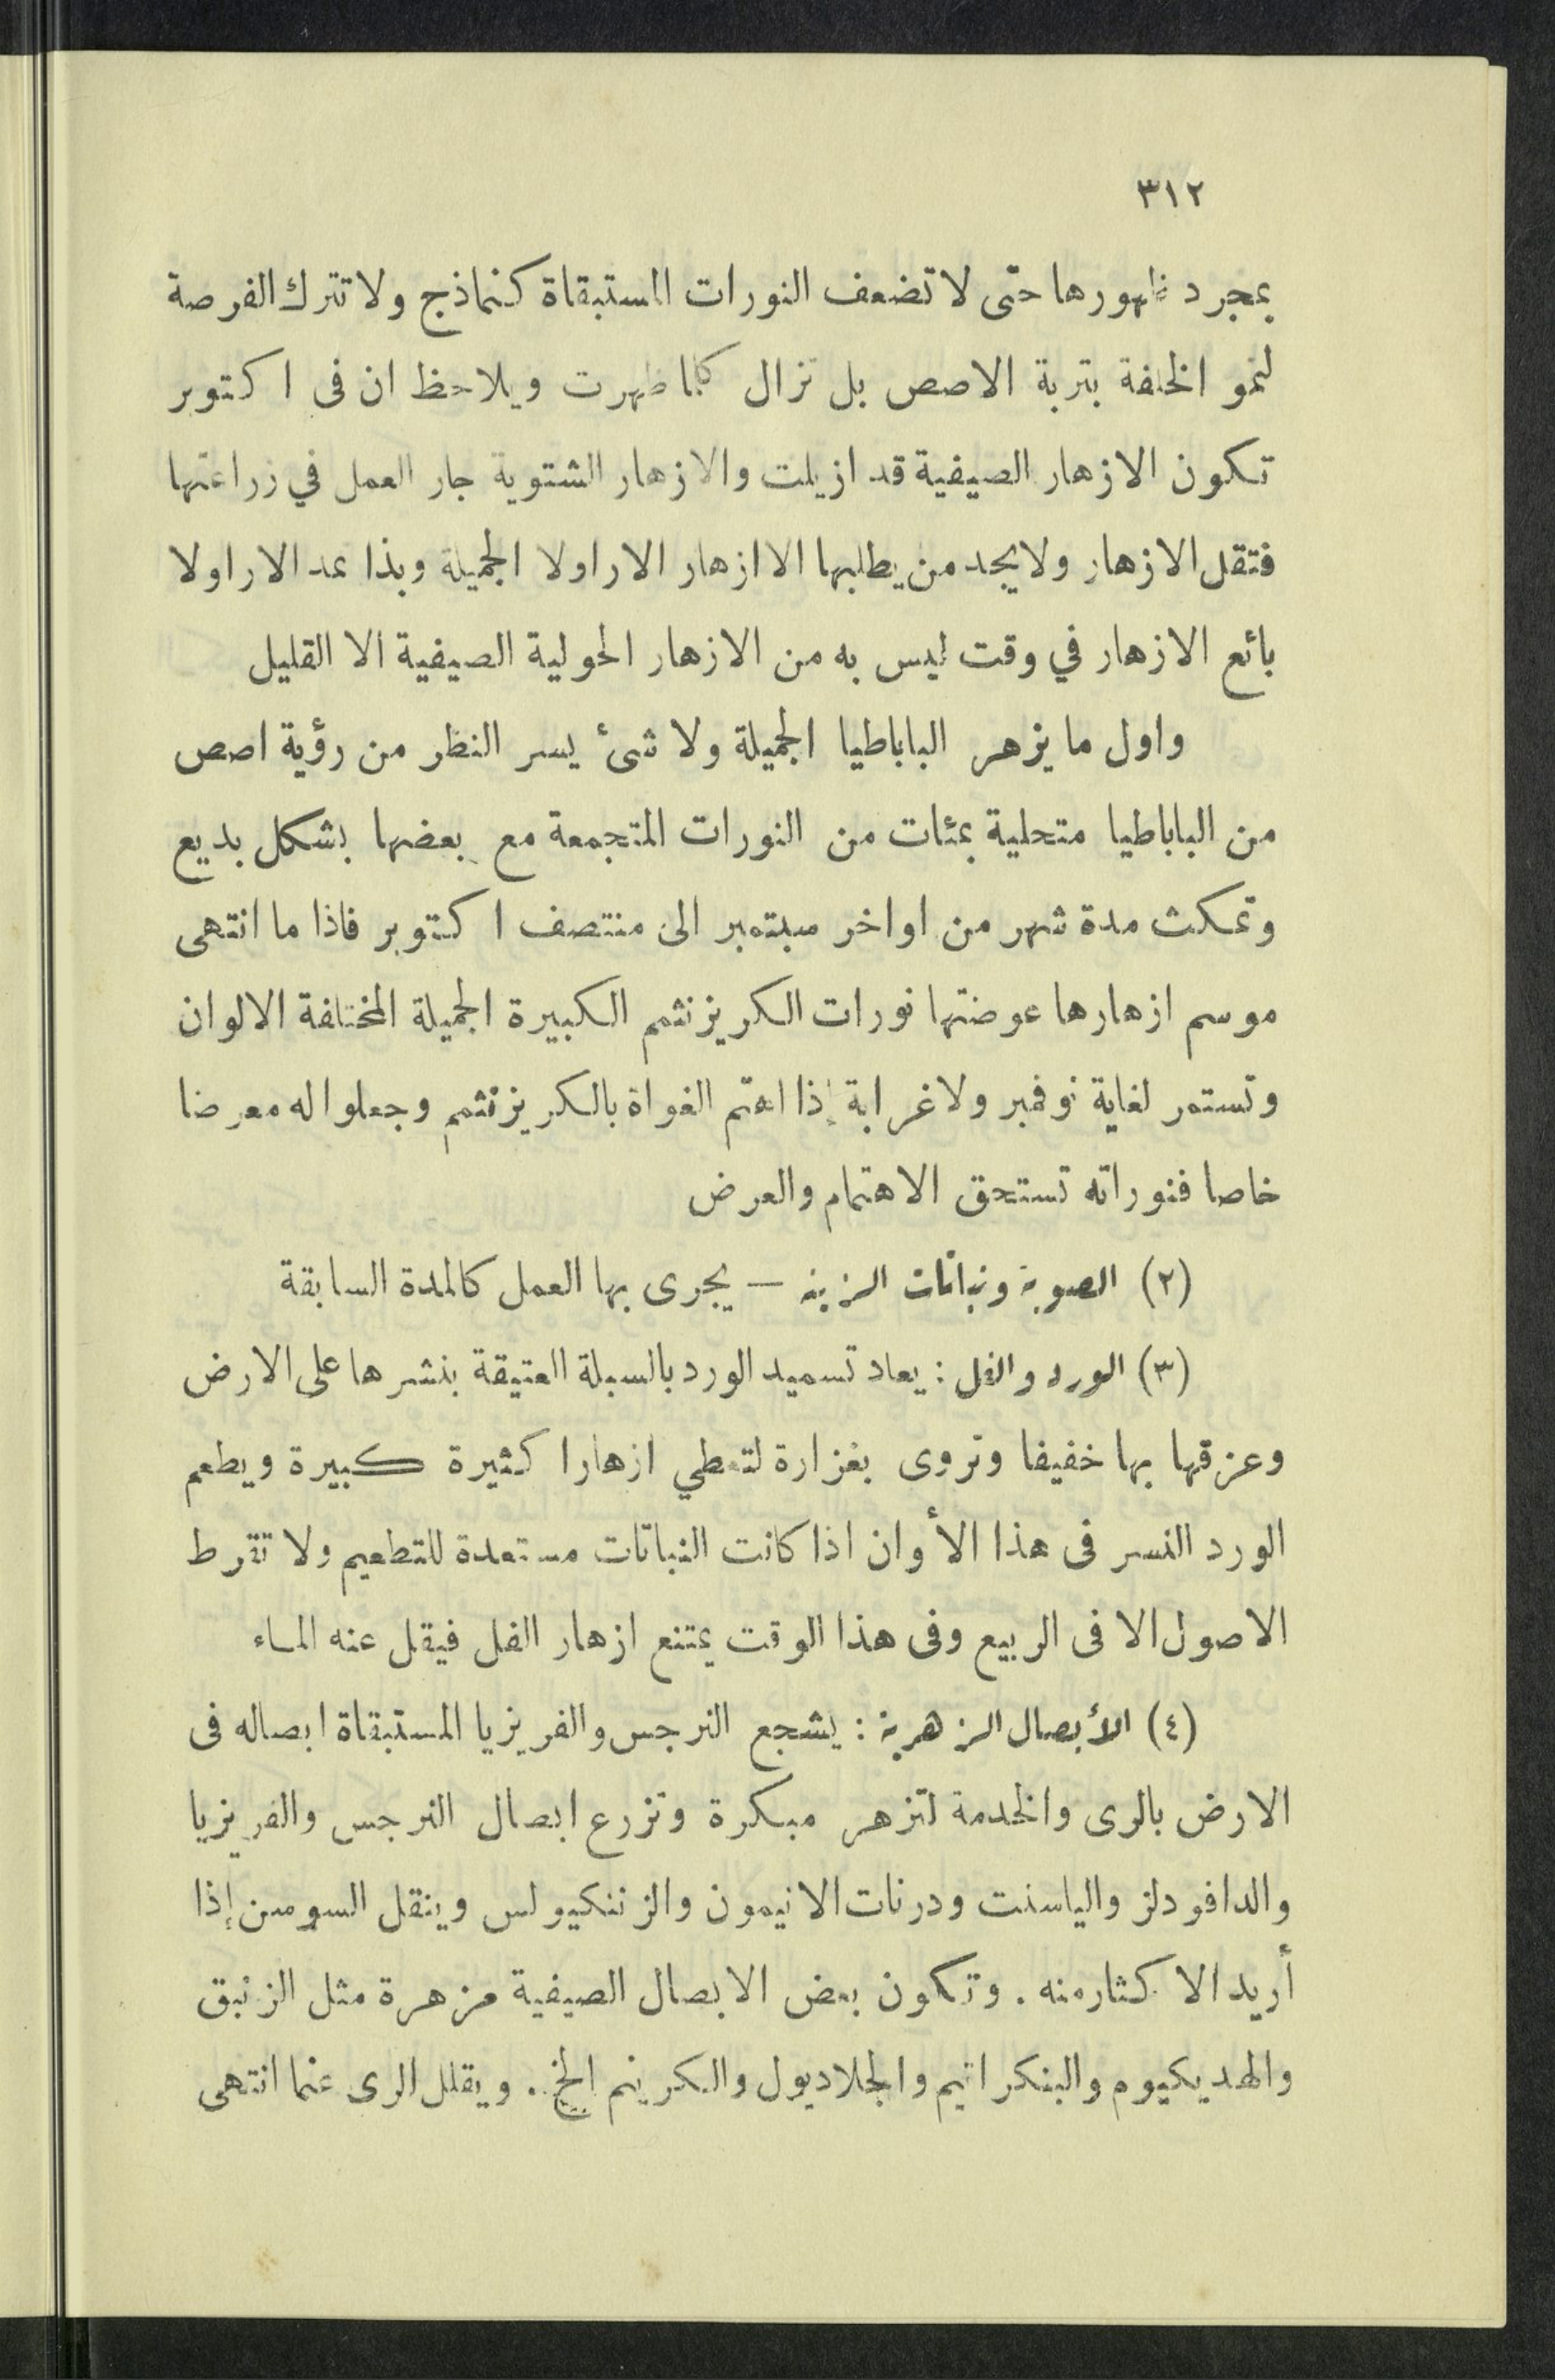 ٣١٢
بمجرد ظهورها حتى لا تضعف النورات المستبقاة كنماذج ولا تترك الفرصة
لنمو الخلفة بتربة الاصص بل تزال كلما ظهرت ويلاحظ ان فى اكتوبر
تكون الازهار الصيفية قد ازيلت والازهار الشتوية جار العمل في زراعتها
فتقل الازهار ولا يجد من يطلبها الا ازهار الاراولا الجميلة وبذا تمد الاراولا
بائع الازهار في وقت ليس به من الازهار الحولية الصيفية الا القليل
واول ما يزهر الباباطيا الجميلة ولا شئ يسر النظر من رؤية اصص
من الباباطيا متحلية بمئات من النورات المتجمعة مع بعضها بشكل بديع
وتمكث مدة شهر من اواخر سبتمبر الى منتصف اكتوبر فاذا ما انتهى
موسم ازهارها عوضتها نورات الكريزنثمم الكبيرة الجميلة المختلفة الالوان
وتستمر لغاية نوفمبر ولا غرابة إذا اهتم الغواة بالكريزنثمم وجعلوا له معرضا
خاصا فنوراته تستحق الاهتمام والعرض
(٢) الصوبة ونباتات الزينة — يجرى بها العمل كالمدة السابقة
(٣) الورد والفل : يعاد تسميد الورد بالسبلة العتيقة بنشرها على الارض
وعزقها بها خفيفا وتروى بغزارة لتعطي ازهارا كثيرة كبيرة ويطعم
الورد النسر فى هذا الأوان اذا كانت النباتات مستعدة للتطعيم ولا تقرط
الاصول الا فى الربيع وفى هذا الوقت يمتنع ازهار الفل فيقل عنه الماء
(٤) الأبصال الزهرية : يشجع النرجس والفريزيا المستبقاة ابصاله فى
الارض بالرى والخدمة لتزهر مبكرة وتزرع ابصال النرجس والفريزيا
والدافودلز والياسنت ودرنات الانيمون والرننكيولس وينقل السوسن إذا
أريد الاكثار منه . وتكون بعض الابصال الصيفية مزهرة مثل الزنبق
والهديكيوم والبنكراتيم والجلاديول والكرينم الخ . ويقلل الرى عنما انتهى